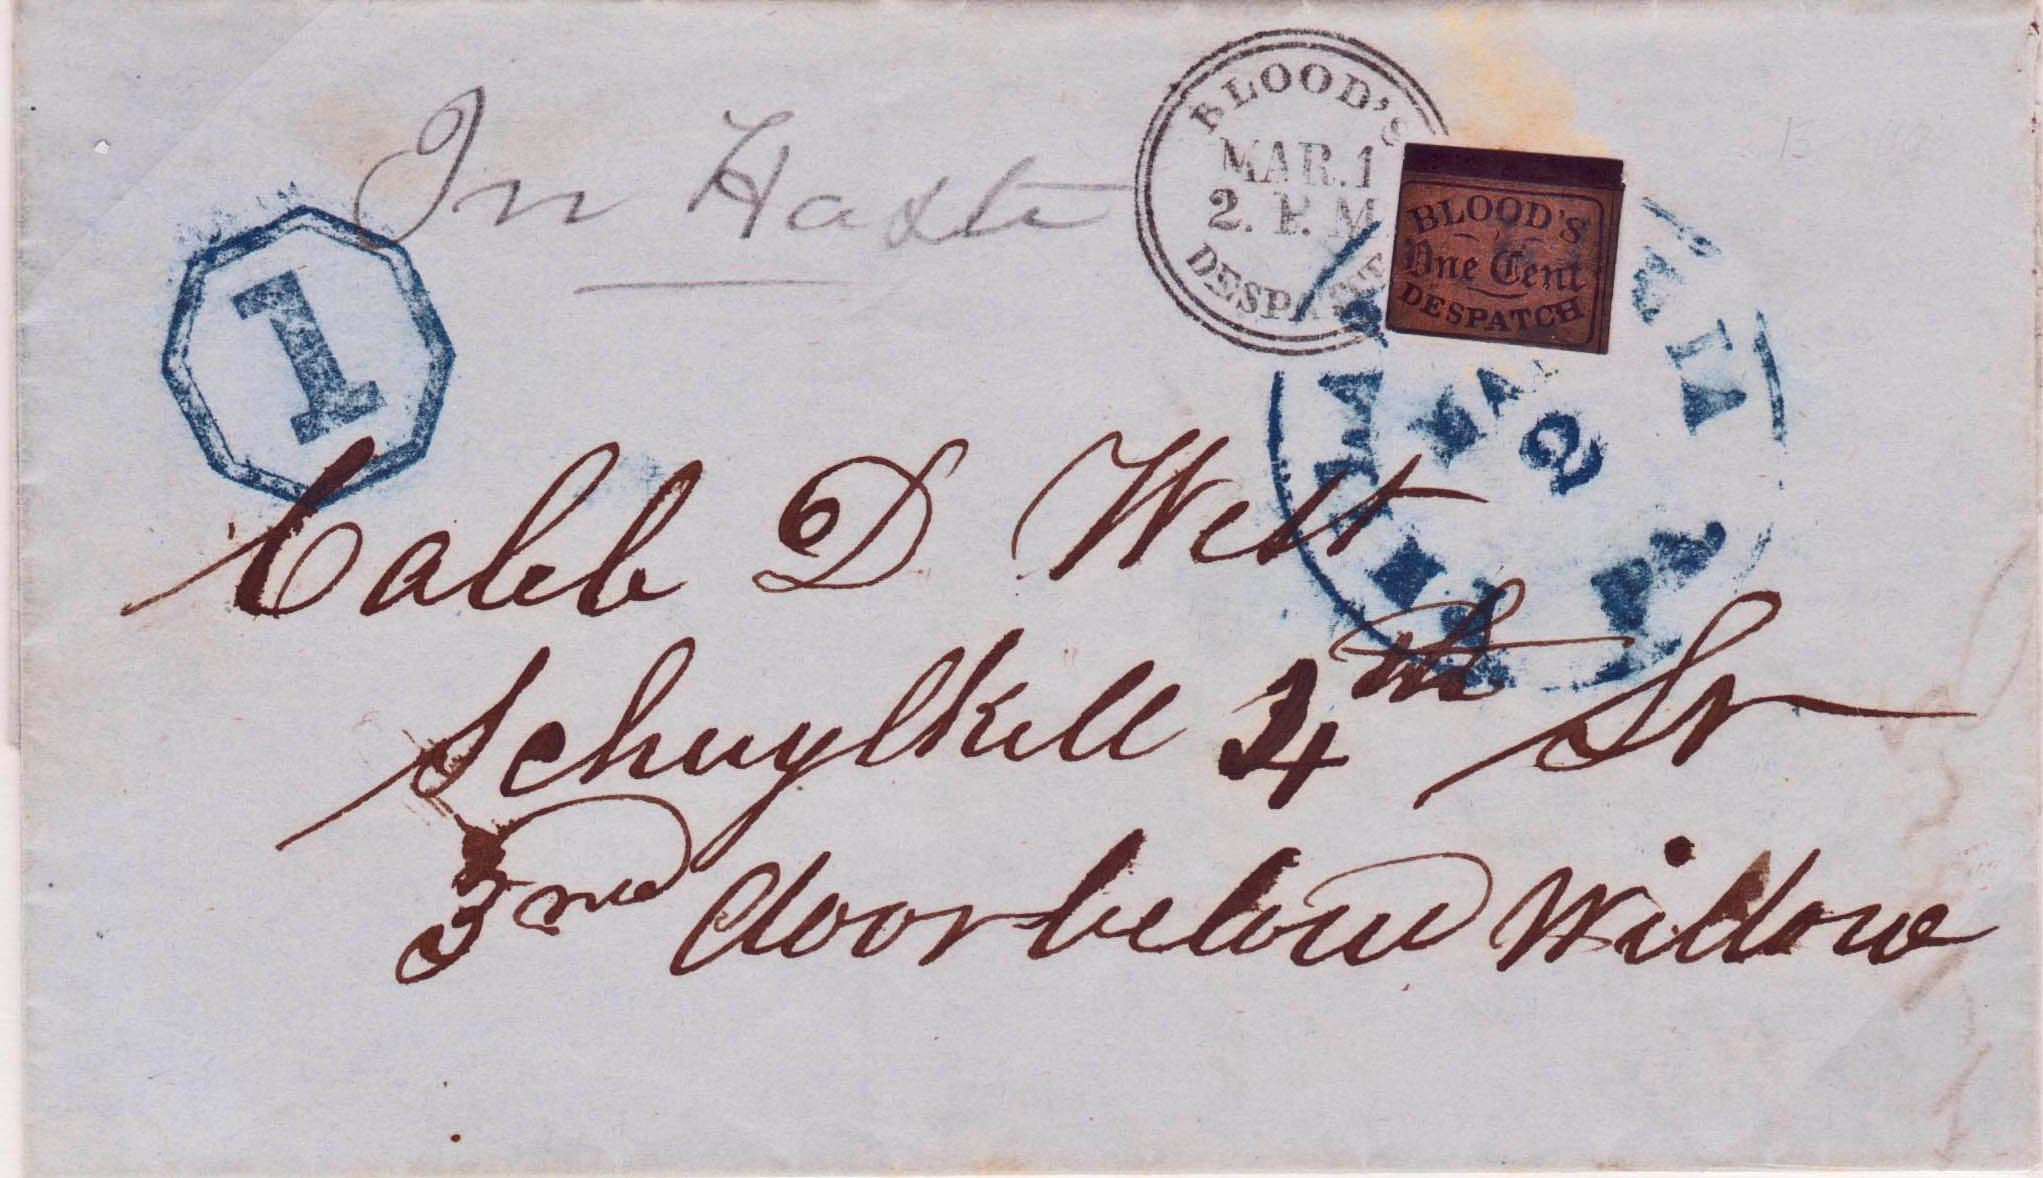 In Haste
BLOOD'S
MAR.1
2. P. M
DESPATCH
BLOOD'S
One Cent
DESPATCH
1
MAR
2
Caleb D West
Schuylkill 4th St
3rd door below Willow